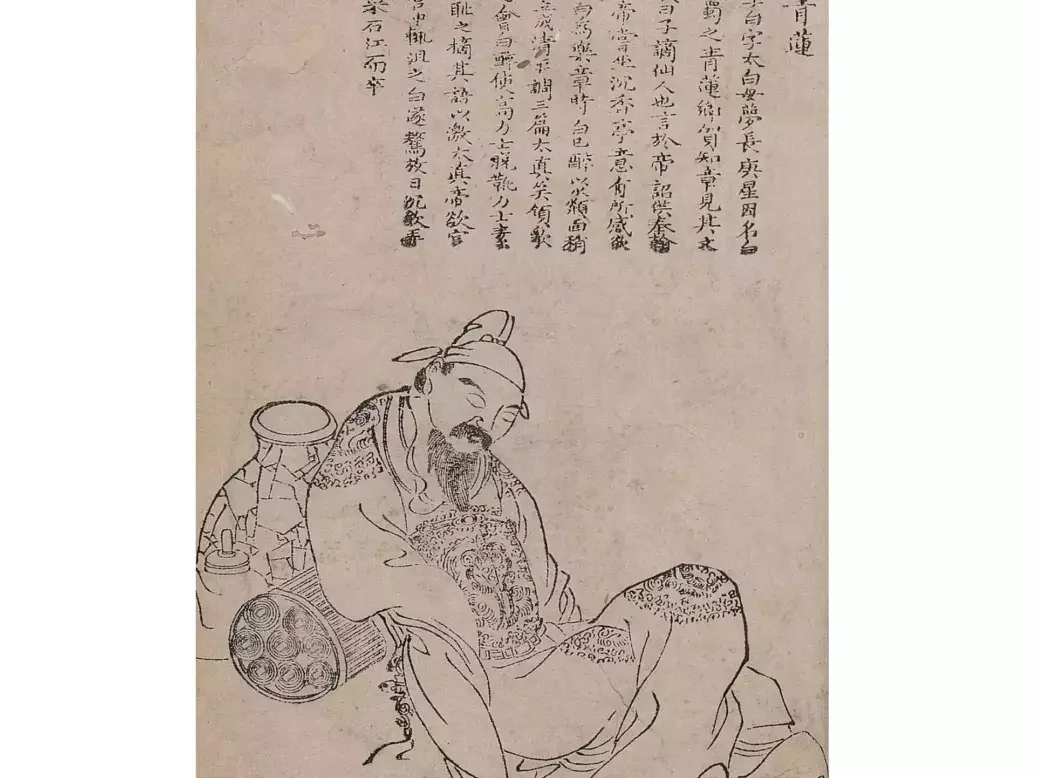 青蓮
白字太白母夢長庚星因名白
蜀之青蓮鄉賀知章見其文
曰子謫仙人也言於帝詔供奉翰
帝嘗坐沉香亭意有所感欲
白為樂章時白已醉以水頮面稍
成清平調三篇太真笑領歌
會白醉使高力士脫靴力士素
恥之摘其語以激太真帝欲官
中輒沮之白遂驁放日沉飲
采石江而卒